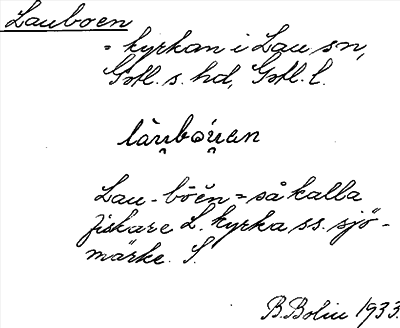 Lauboen
= kyrkan i Lau sn,
Gotl. s. hd, Gotl. l.
làu̯bóu̯en
Lau-böen = så kalla
fiskare L. kyrka ss. sjö-
märke. S.
B. Bolin 1933.